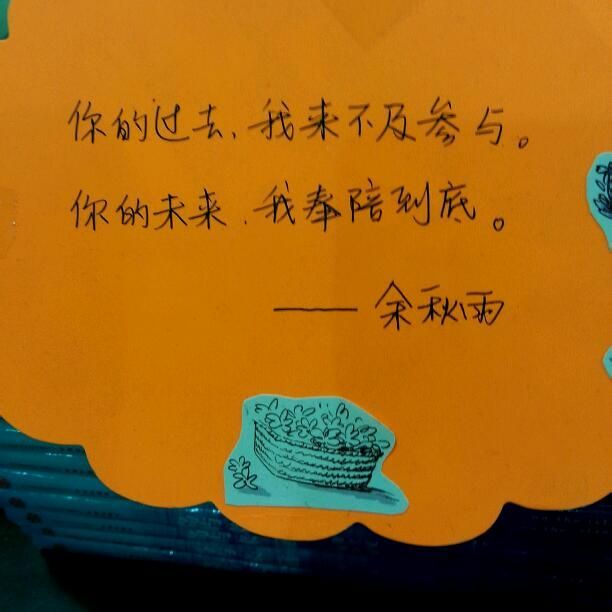 你的过去、我来不及参与。
你的未来、我奉陪到底。
——余秋雨